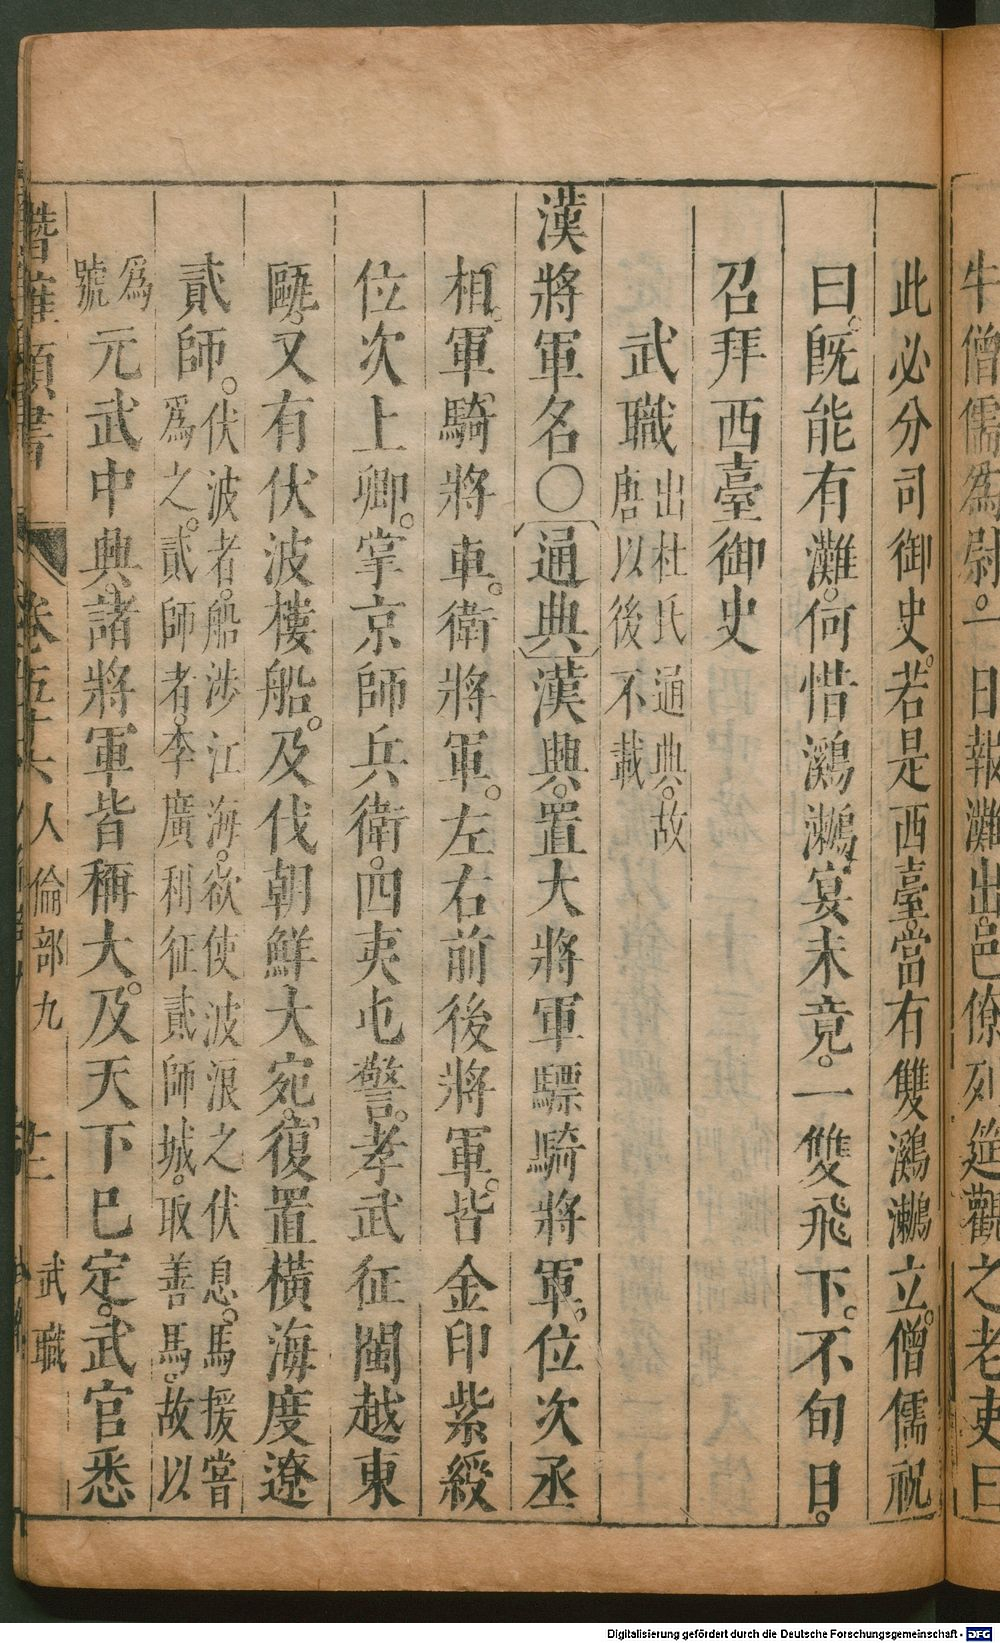 牛僧儒爲尉。一日報灘出邑僚列筵觀之老吏曰
此必分司御史。若是西臺。當有雙鸂鶒立。僧儒祝
曰。旣能有灘。何惜鸂鶒。宴未竟。一雙飛下。不旬日。
召拜西臺御史
武職 出杜氏通典。故
唐以後不載
漢將軍名〇〔通典〕漢興。置大將軍驃騎將軍。位次丞
相。軍騎將車。衛將軍。左右前後將軍。皆金印紫綬
位次上卿。掌京師兵衛。四夷屯警。孝武征閩越東
甌。又有伏波樓船。及伐朝鮮大宛。復置橫海度遼
貳師。伏波者。船涉江海。欲使波浪之伏息。馬援嘗
爲之。貳師者。李廣利征貳師城。取善馬。故以
爲
號 元武中興。諸將軍皆稱大。及天下已定。武官悉
卷五十六 人倫部九 武職
Digitalisierung gefördert durch die Deutsche Forschungsgemeinschaft - DFG